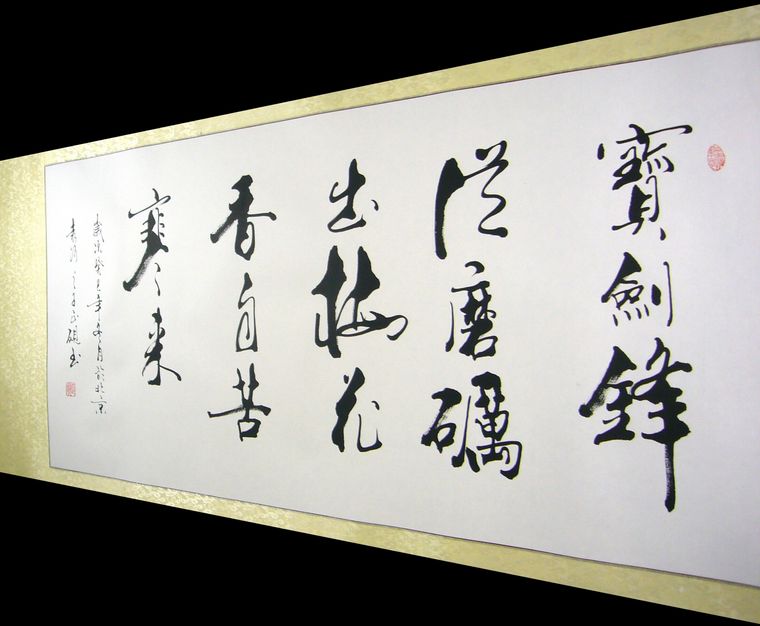 寶劍鋒
從磨礪
出梅花
香自苦
寒來
歲次癸巳年冬月於北京
書